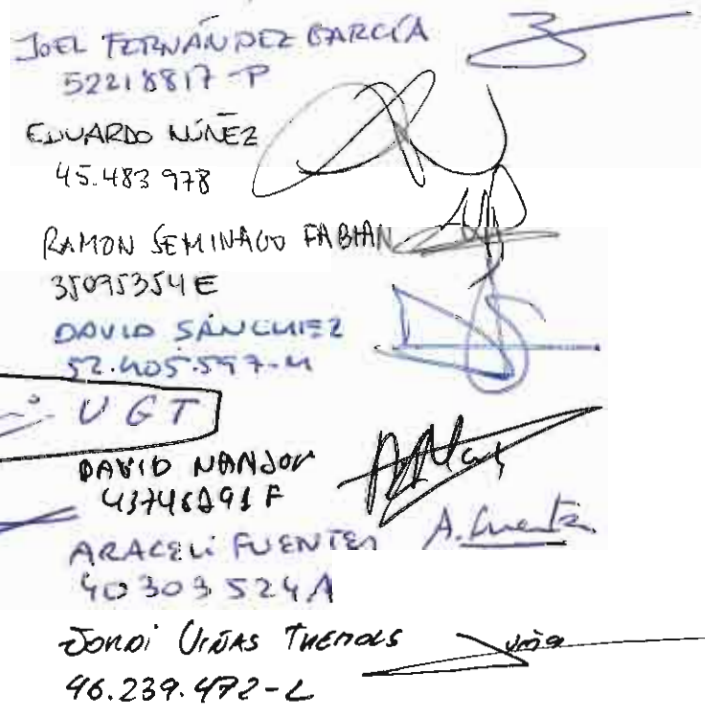 JOEL FERNÁNDEZ GARCÍA
52218817-P
EDUARDO NÚÑEZ
45.483 978
RAMON SEMINAGO FABIAN
35095354E
DAVID SÁNCHEZ
52.405.597-M
UGT
DAVID
F
ARACELI FUENTES A. Fuentes
40303524A
JORDI VIÑAS Viña
46.239.472-L